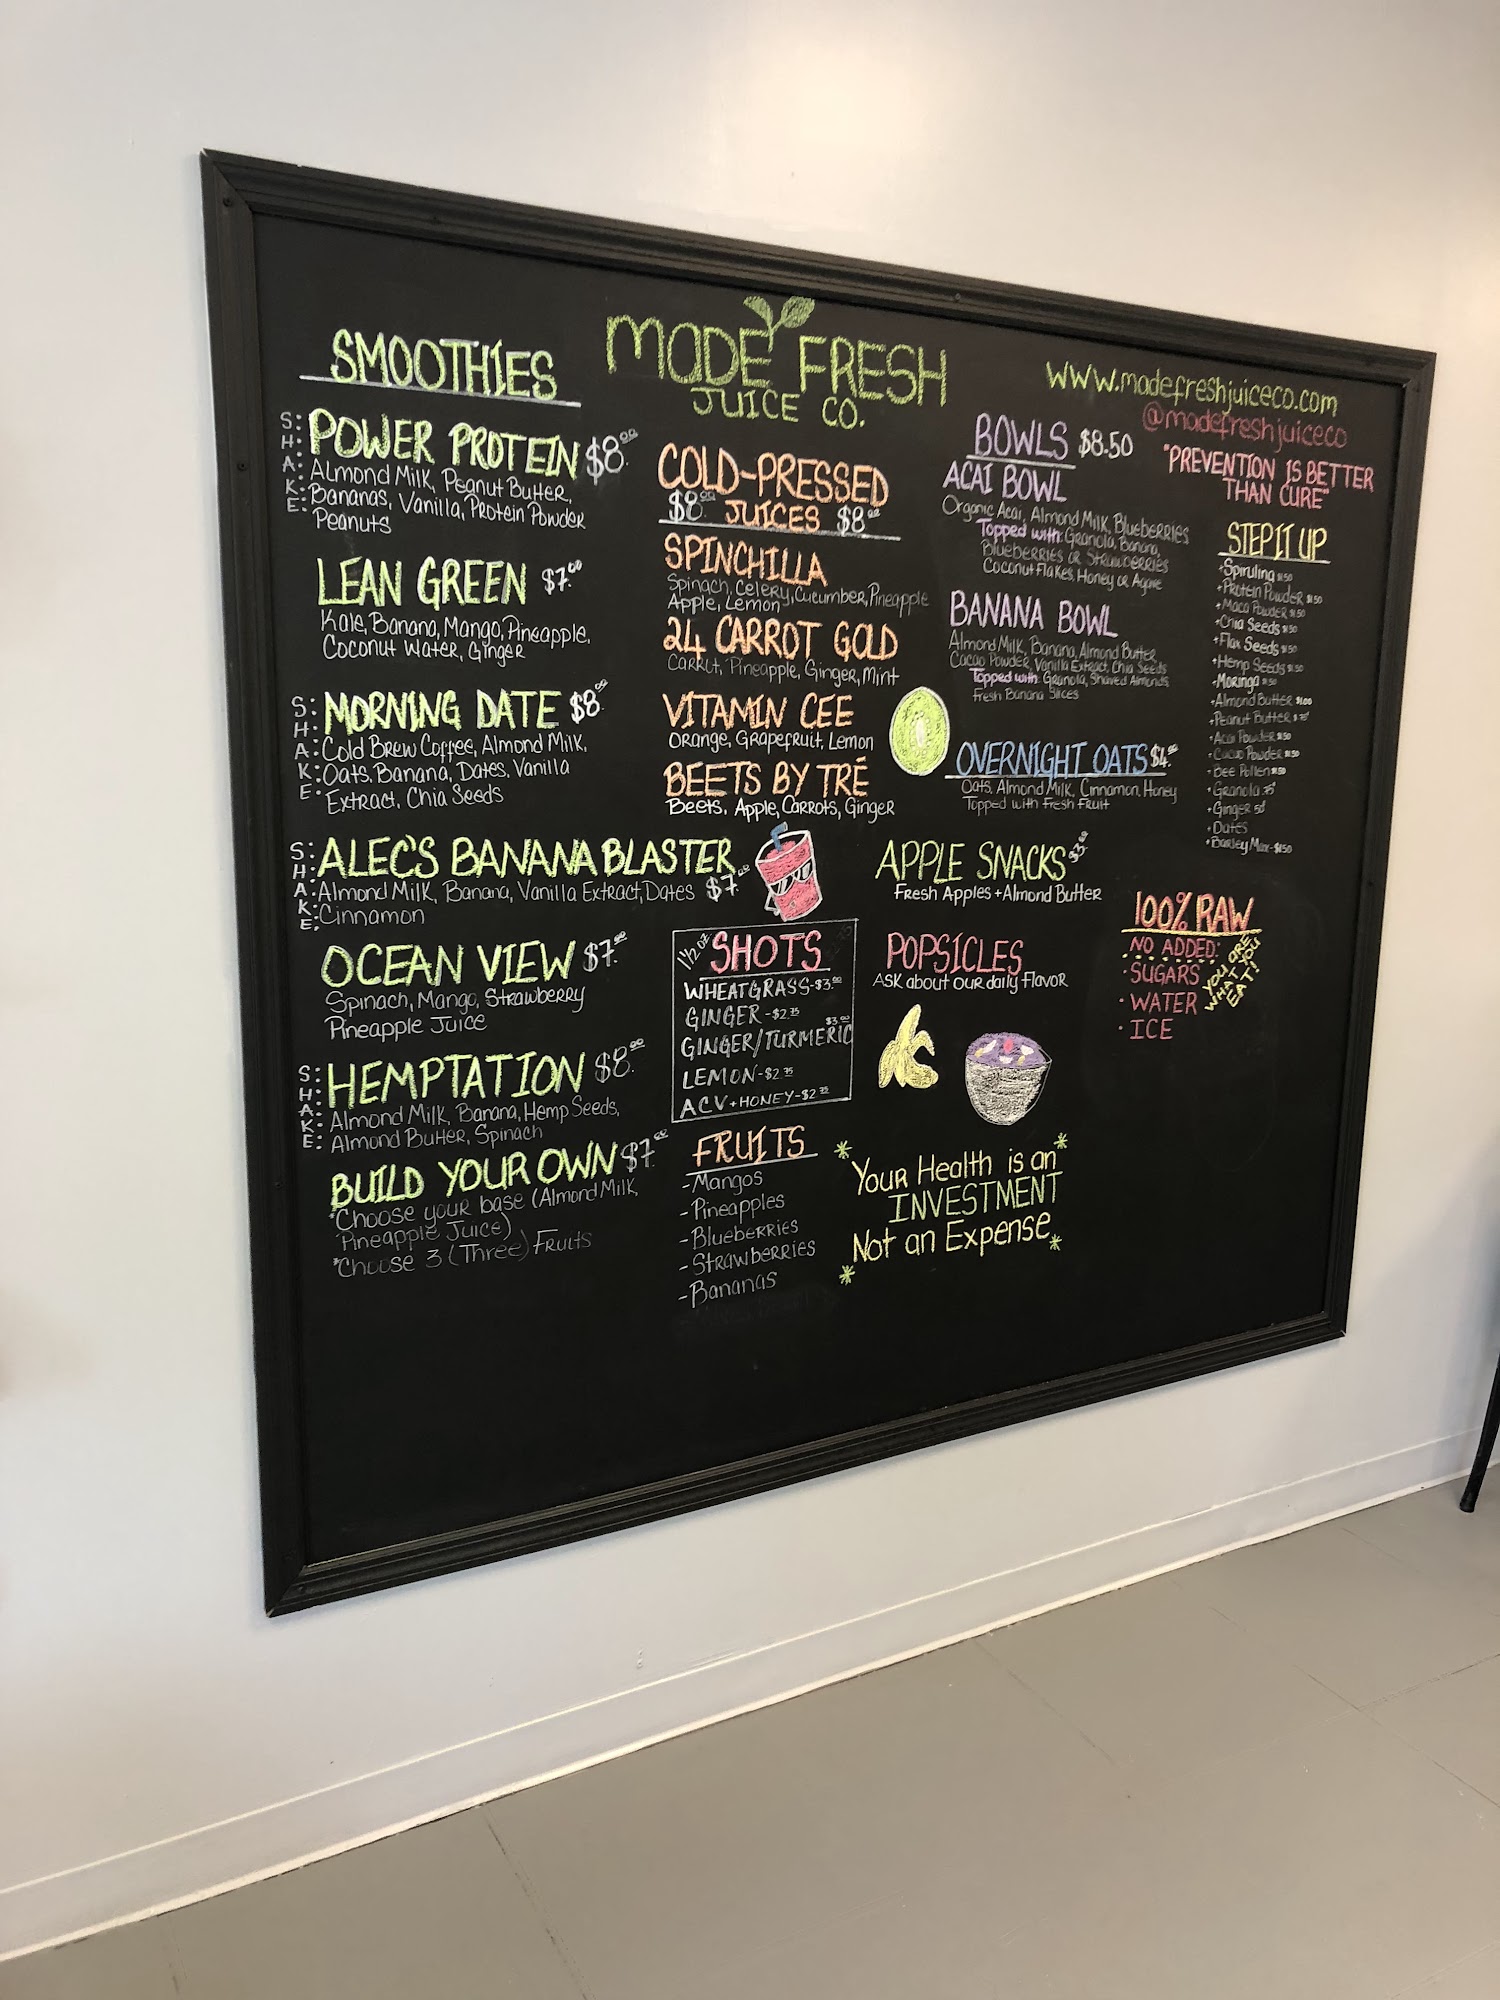 MADE FRESH
JUICE CO.
SMOOTHIES
SHAKE:
POWER PROTEIN $8.00
Almond Milk, Peanut Butter,
Bananas, Vanilla, Protein Powder
Peanuts
LEAN GREEN $7.00
Kale, Banana, Mango, Pineapple,
Coconut Water, Ginger
SHAKE:
MORNING DATE $8.00
Cold Brew Coffee, Almond Milk,
Oats, Banana, Dates, Vanilla
Extract, Chia Seeds
SHAKE:
ALEC'S BANANA BLASTER
Almond Milk, Banana, Vanilla Extract, Dates $7.00
Cinnamon
OCEAN VIEW $7.00
Spinach, Mango, Strawberry
Pineapple Juice
SHAKE:
HEMPTATION $8.00
Almond Milk, Banana, Hemp Seeds,
Almond Butter, Spinach
BUILD YOUR OWN $7.00
*Choose your base (Almond Milk,
Pineapple Juice)
*Choose 3 (Three) Fruits
COLD-PRESSED
$8.00 JUICES $8.00
SPINCHILLA
Spinach, Celery, Cucumber, Pineapple
Apple, Lemon
24 CARROT GOLD
Carrot, Pineapple, Ginger, Mint
VITAMIN CEE
Orange, Grapefruit, Lemon
BEETS BY TRÉ
Beets, Apple, Carrots, Ginger
1 1/2 OZ SHOTS
WHEATGRASS-$3.00
GINGER-$2.75
GINGER/TURMERIC $3.00
LEMON-$2.75
ACV+HONEY-$2.75
FRUITS
-Mangos
-Pineapples
-Blueberries
-Strawberries
-Bananas
BOWLS $8.50
ACAI BOWL
Organic Acai, Almond Milk, Blueberries
Topped with: Granola, Banana,
Blueberries or Strawberries
Coconut Flakes, Honey or Agave
BANANA BOWL
Almond Milk, Banana, Almond Butter
Cacao Powder, Vanilla Extract, Chia Seeds
Topped with: Granola, Shaved Almonds,
Fresh Banana Slices
OVERNIGHT OATS $4.00
Oats, Almond Milk, Cinnamon, Honey
Topped with Fresh Fruit
APPLE SNACKS
Fresh Apples + Almond Butter
POPSICLES
ASK about our daily flavor
*Your Health is an*
INVESTMENT
*Not an Expense*
www.madefreshjuiceco.com
@madefreshjuiceco
"PREVENTION IS BETTER
THAN CURE"
STEP IT UP
+Spirulina $1.50
+Protein Powder $1.50
+Maca Powder $1.50
+Chia Seeds $1.50
+Flax Seeds $1.50
+Hemp Seeds $1.50
+Moringa $1.50
+Almond Butter $1.00
+Peanut Butter
+Acai Powder $1.50
+Cacao Powder $1.50
+Bee Pollen $1.50
+Granola
+Ginger
+Dates
+Barley Max-$1.50
100% RAW
NO ADDED:
·SUGARS
·WATER
·ICE
YOU ARE
WHAT YOU
EAT!